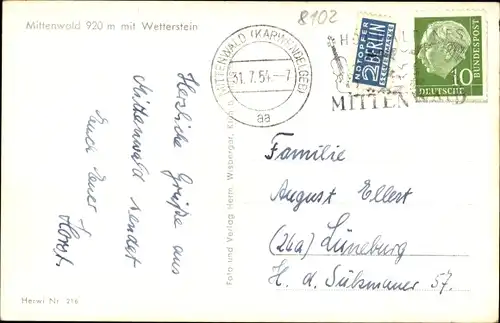 Mittenwald 920 m mit Wetterstein
8102
MITTENWALD (KARWENDELGEB)
31.7.54.-7
aa
NOTOPFER
2 BERLIN
STEUERMARKE
10
DEUTSCHE BUNDESPOST
MITTENWALD
Herzliche Grüße aus
Mittenwald sendet
Euch Euer
Horst.
Foto und Verlag Herm. Wisberger,
Familie
August Ellert
(24a) Lüneburg
H. d. Sülzmauer 57.
Herwi Nr. 216